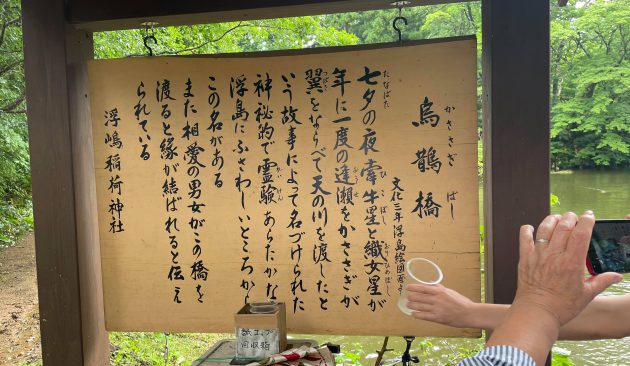 かささぎ ばし
烏鵲橋
文化三年 浮島絵図面
たなばた ひこぼし おりひめぼし
七夕の夜牽牛星と織女星が
年に一度の逢瀬をかささぎが
つばさ
翼をならべて天の川を渡したと
いう故事によって名づけられた
れいけん
神秘的で霊験あらたかな
浮島にふさわしいところか
この名がある
また相愛の男女がこの橋を
渡ると縁が結ばれると伝え
られている
浮嶋稲荷神社
コップ
回収箱